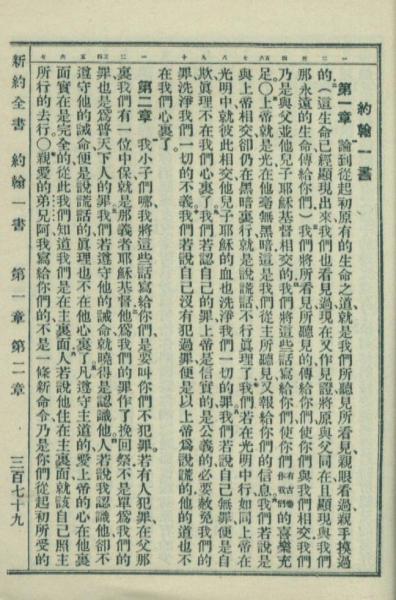 約翰一書
第一章 論到從起初原有的生命之道就是我們所聽見所看見親眼看過親手摸過
的、(這生命已經顯現出來我們也看見過現在又作見證將原與父同在且顯現與我們
那永遠的生命傳給你們)我們將所看見所聽見的傳給你們使你們與我們相交我們
乃是與父並他兒子耶穌基督相交的我們將這些話寫給你們使你們有古卷作我們的喜樂充
足。○上帝就是光在他毫無黑暗這是我們從主所聽見又報給你們的信息我們若說是
與上帝相交卻仍在黑暗裏行就是說謊話不行眞理了我們若在光明中行如同上帝在
光明中就彼此相交他兒子耶穌的血也洗淨我們一切的罪我們若說自己無罪便是自
欺眞理不在我們心裏了我們若認自己的罪上帝是信實的是公義的必要赦免我們的
罪洗淨我們一切的不義我們若說自己沒有犯過罪便是以上帝爲說謊的他的道也不
在我們心裏了。
第二章 我小子們哪我將這些話寫給你們是要叫你們不犯罪若有人犯罪在父那
裏我們有一位中保就是那義者耶穌基督他爲我們的罪作了挽回祭不是單爲我們的
罪也是爲普天下人的罪我們若遵守他的誡命就曉得是認識他人若說我認識他卻不
遵守他的誡命便是說謊話的眞理也不在他心裏了凡遵守主道的愛上帝的心在他裏
面實在是完全的從此我們知道我們是在主裏面人若說他住在主裏面就該自己照主
所行的去行○親愛的弟兄阿我寫給你們的不是一條新命令乃是你們從起初所受的
新約全書 約翰一書 第一章 第二章 三百七十九